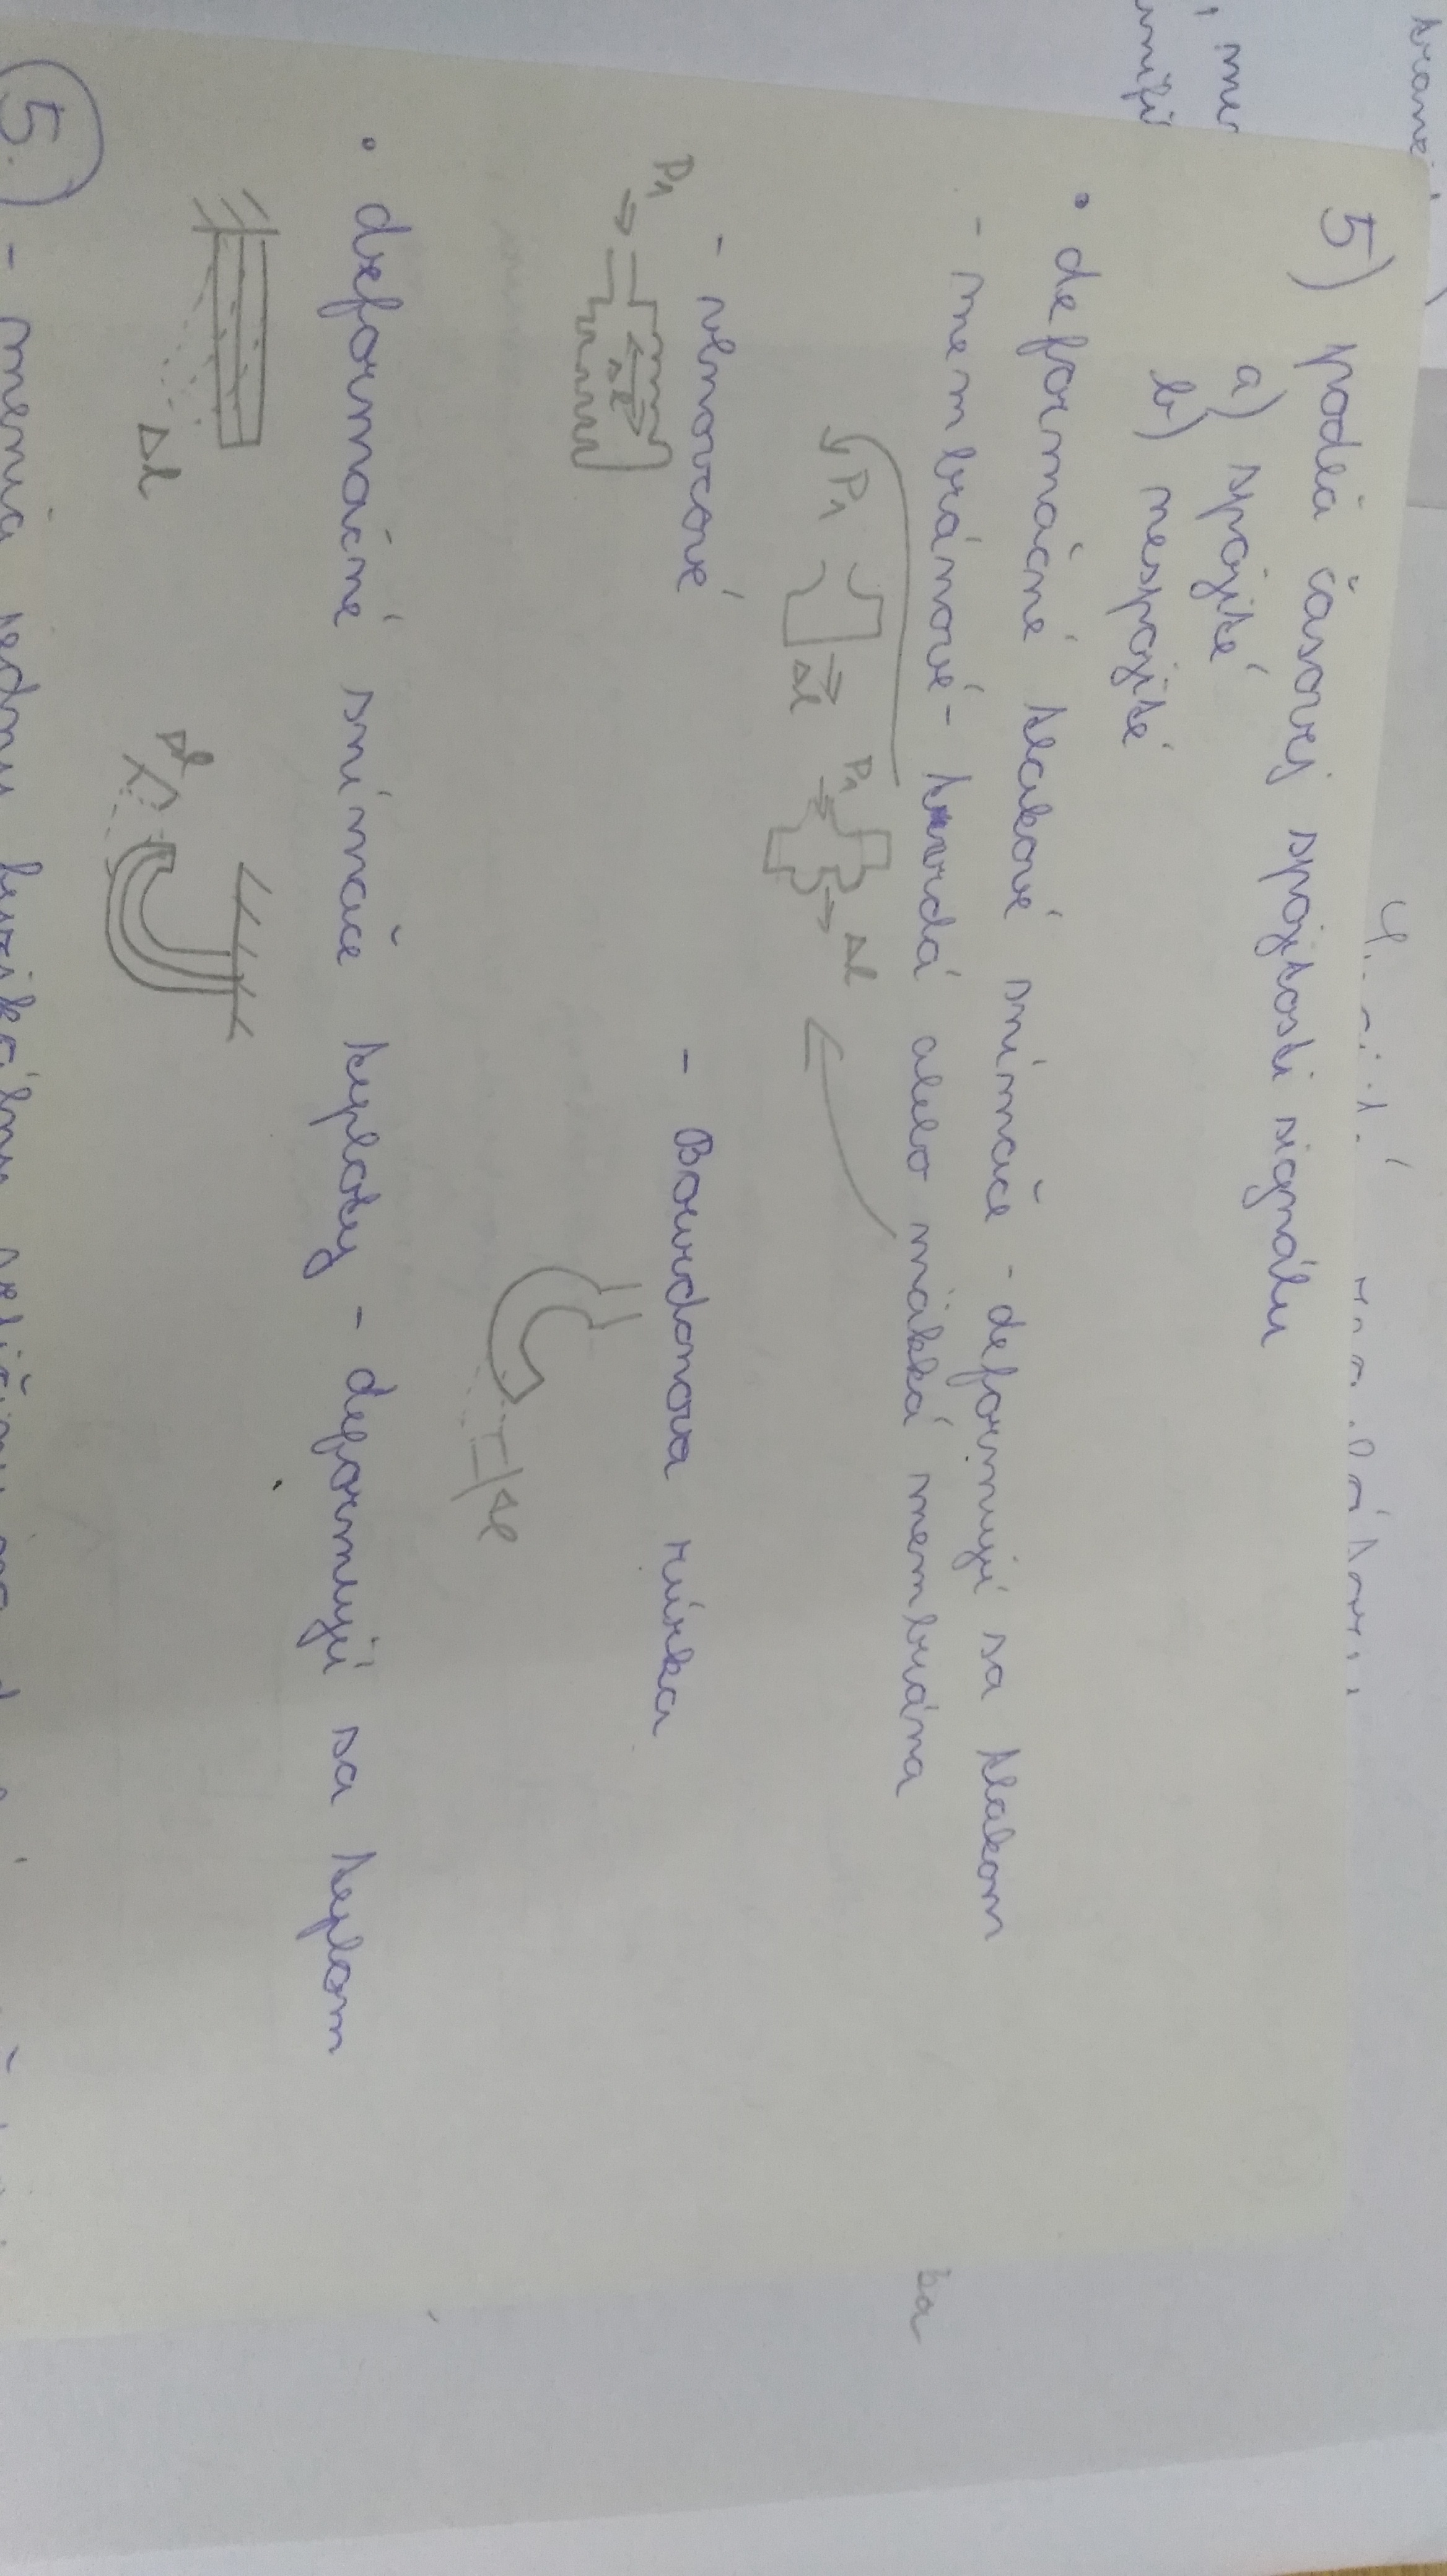 5) podľa časovej spojitosti signálu
a) spojité
b) nespojité
• deformačné tlakové snímače - deformujú sa tlakom
- membránové - tvrdá alebo mäkká membrána
P1 Δl P1 Δl
- vlnovcové - Bourdonova rúrka
P1 Δl Δl
• deformačné snímače teploty - deformujú sa teplom
Δl Δl
5. - menia jednu fyzikálnu veličinu na
ba